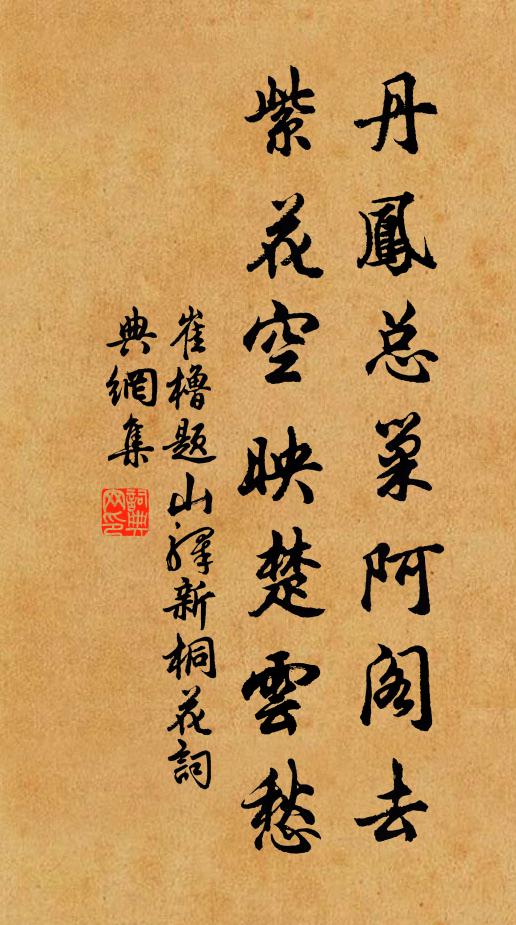 丹鳳总巢阿阁去
紫花空映楚雲愁
崔櫓题山驛新桐花詞
典網集
詞典网印